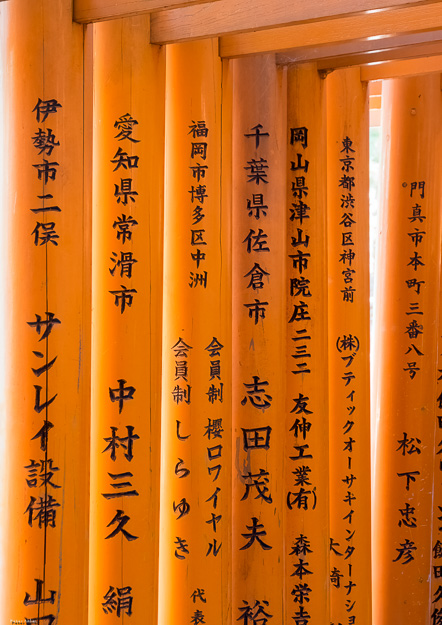 伊勢市二俣 サンレイ設備 山
愛知県常滑市 中村三久 絹
福岡市博多区中洲
会員制 櫻ロワイヤル 代表
会員制 しらゆき
千葉県佐倉市 志田茂夫 裕
岡山県津山市院庄二三二 友伸工業(有) 森本栄吉
東京都渋谷区神宮前 (株)ブティックオーサキインターナショ
大崎
門真市本町三番八号 松下忠彦